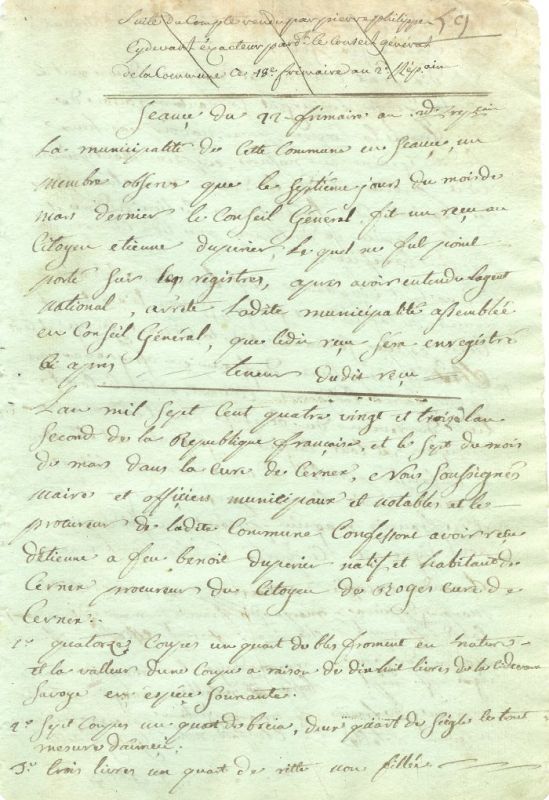 Suite du Compte rendu par pierre philippe 59
Cydevant éxacteur pard.t le conseil general
de la Commune Ce 18e frimaire an 2e Rép.
Seance du 22 frimaire an 2d rep.
La municipalité de Cette Commune en Seance, un
membre observe que le Septième jours du mois de
mars dernier le Conseil Général fit un reçu au
Citoyen etienne duperier, Le quel ne fut point
porté sur les registres, apres avoir entendu Lagent
national, arrete Ladite municipalité assemblée
en Conseil Général, que ledit reçu Sera enregistré
Ci après teneur dudit reçu
Lan mil Sept Cent quatre vingt et treize lan
Second de la République française, et le Sept du mois
de mars dans la Cure de Cernex, Nous Soussignés
maire et officiers municipaux et notables et le
procureur de Ladite Commune Confessons avoir reçu
détienne a feu benoit duperier natif et habitant de
Cernex procureur du Citoyen de Roges Curé de
Cernex.
1o quatorze Coupes un quart de bled froment en nature
et la valleur dune Coupe a raison de dix huit livres de la Cidevant
Savoye en espece Sonnante.
2o Sept Coupes un quart de , deux quart de Siègle le tout
mesure
3o trois livres un quart de ritte non fillée